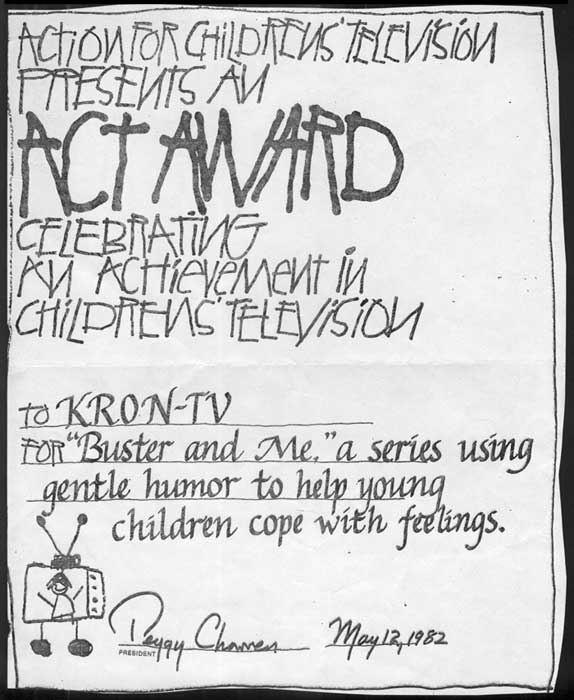 ACTION FOR CHILDRENS' TELEVISION
PRESENTS AN
ACT AWARD
CELEBRATING
AN ACHIEVEMENT IN
CHILDRENS' TELEVISION
TO KRON-TV
FOR "Buster and Me," a series using
gentle humor to help young
children cope with feelings.
Peggy Charren May 12, 1982
PRESIDENT